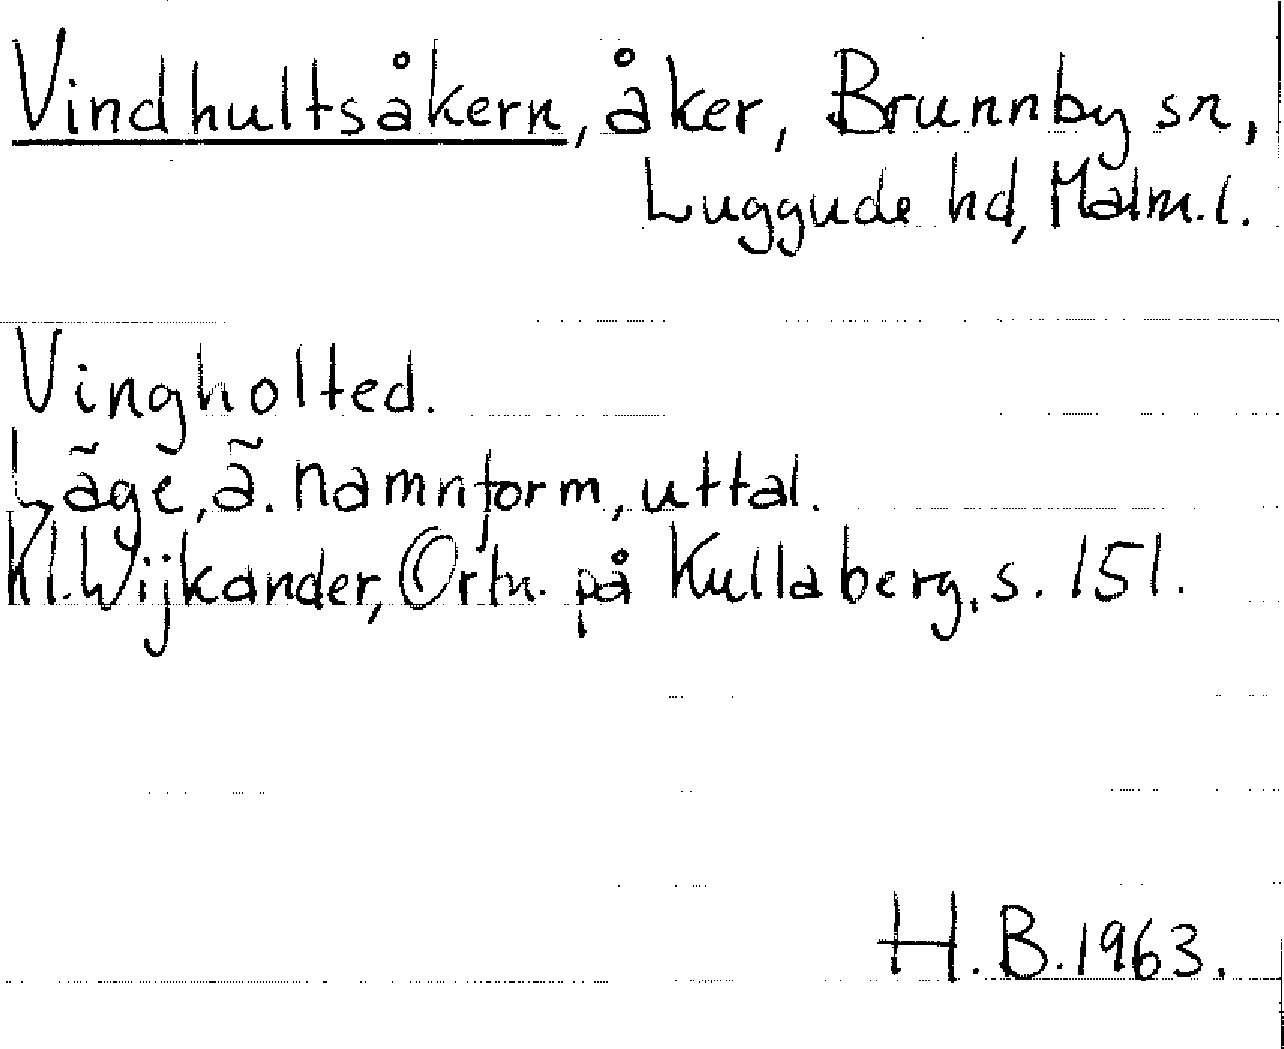 Vindhultsåkern, åker, Brunnby sn,
Luggude hd, Malm. l.
Vingholted.
Läge, ä. namnform, uttal.
Kl. Wijkander, Ortn. på Kullaberg, s. 151.
H. B. 1963.